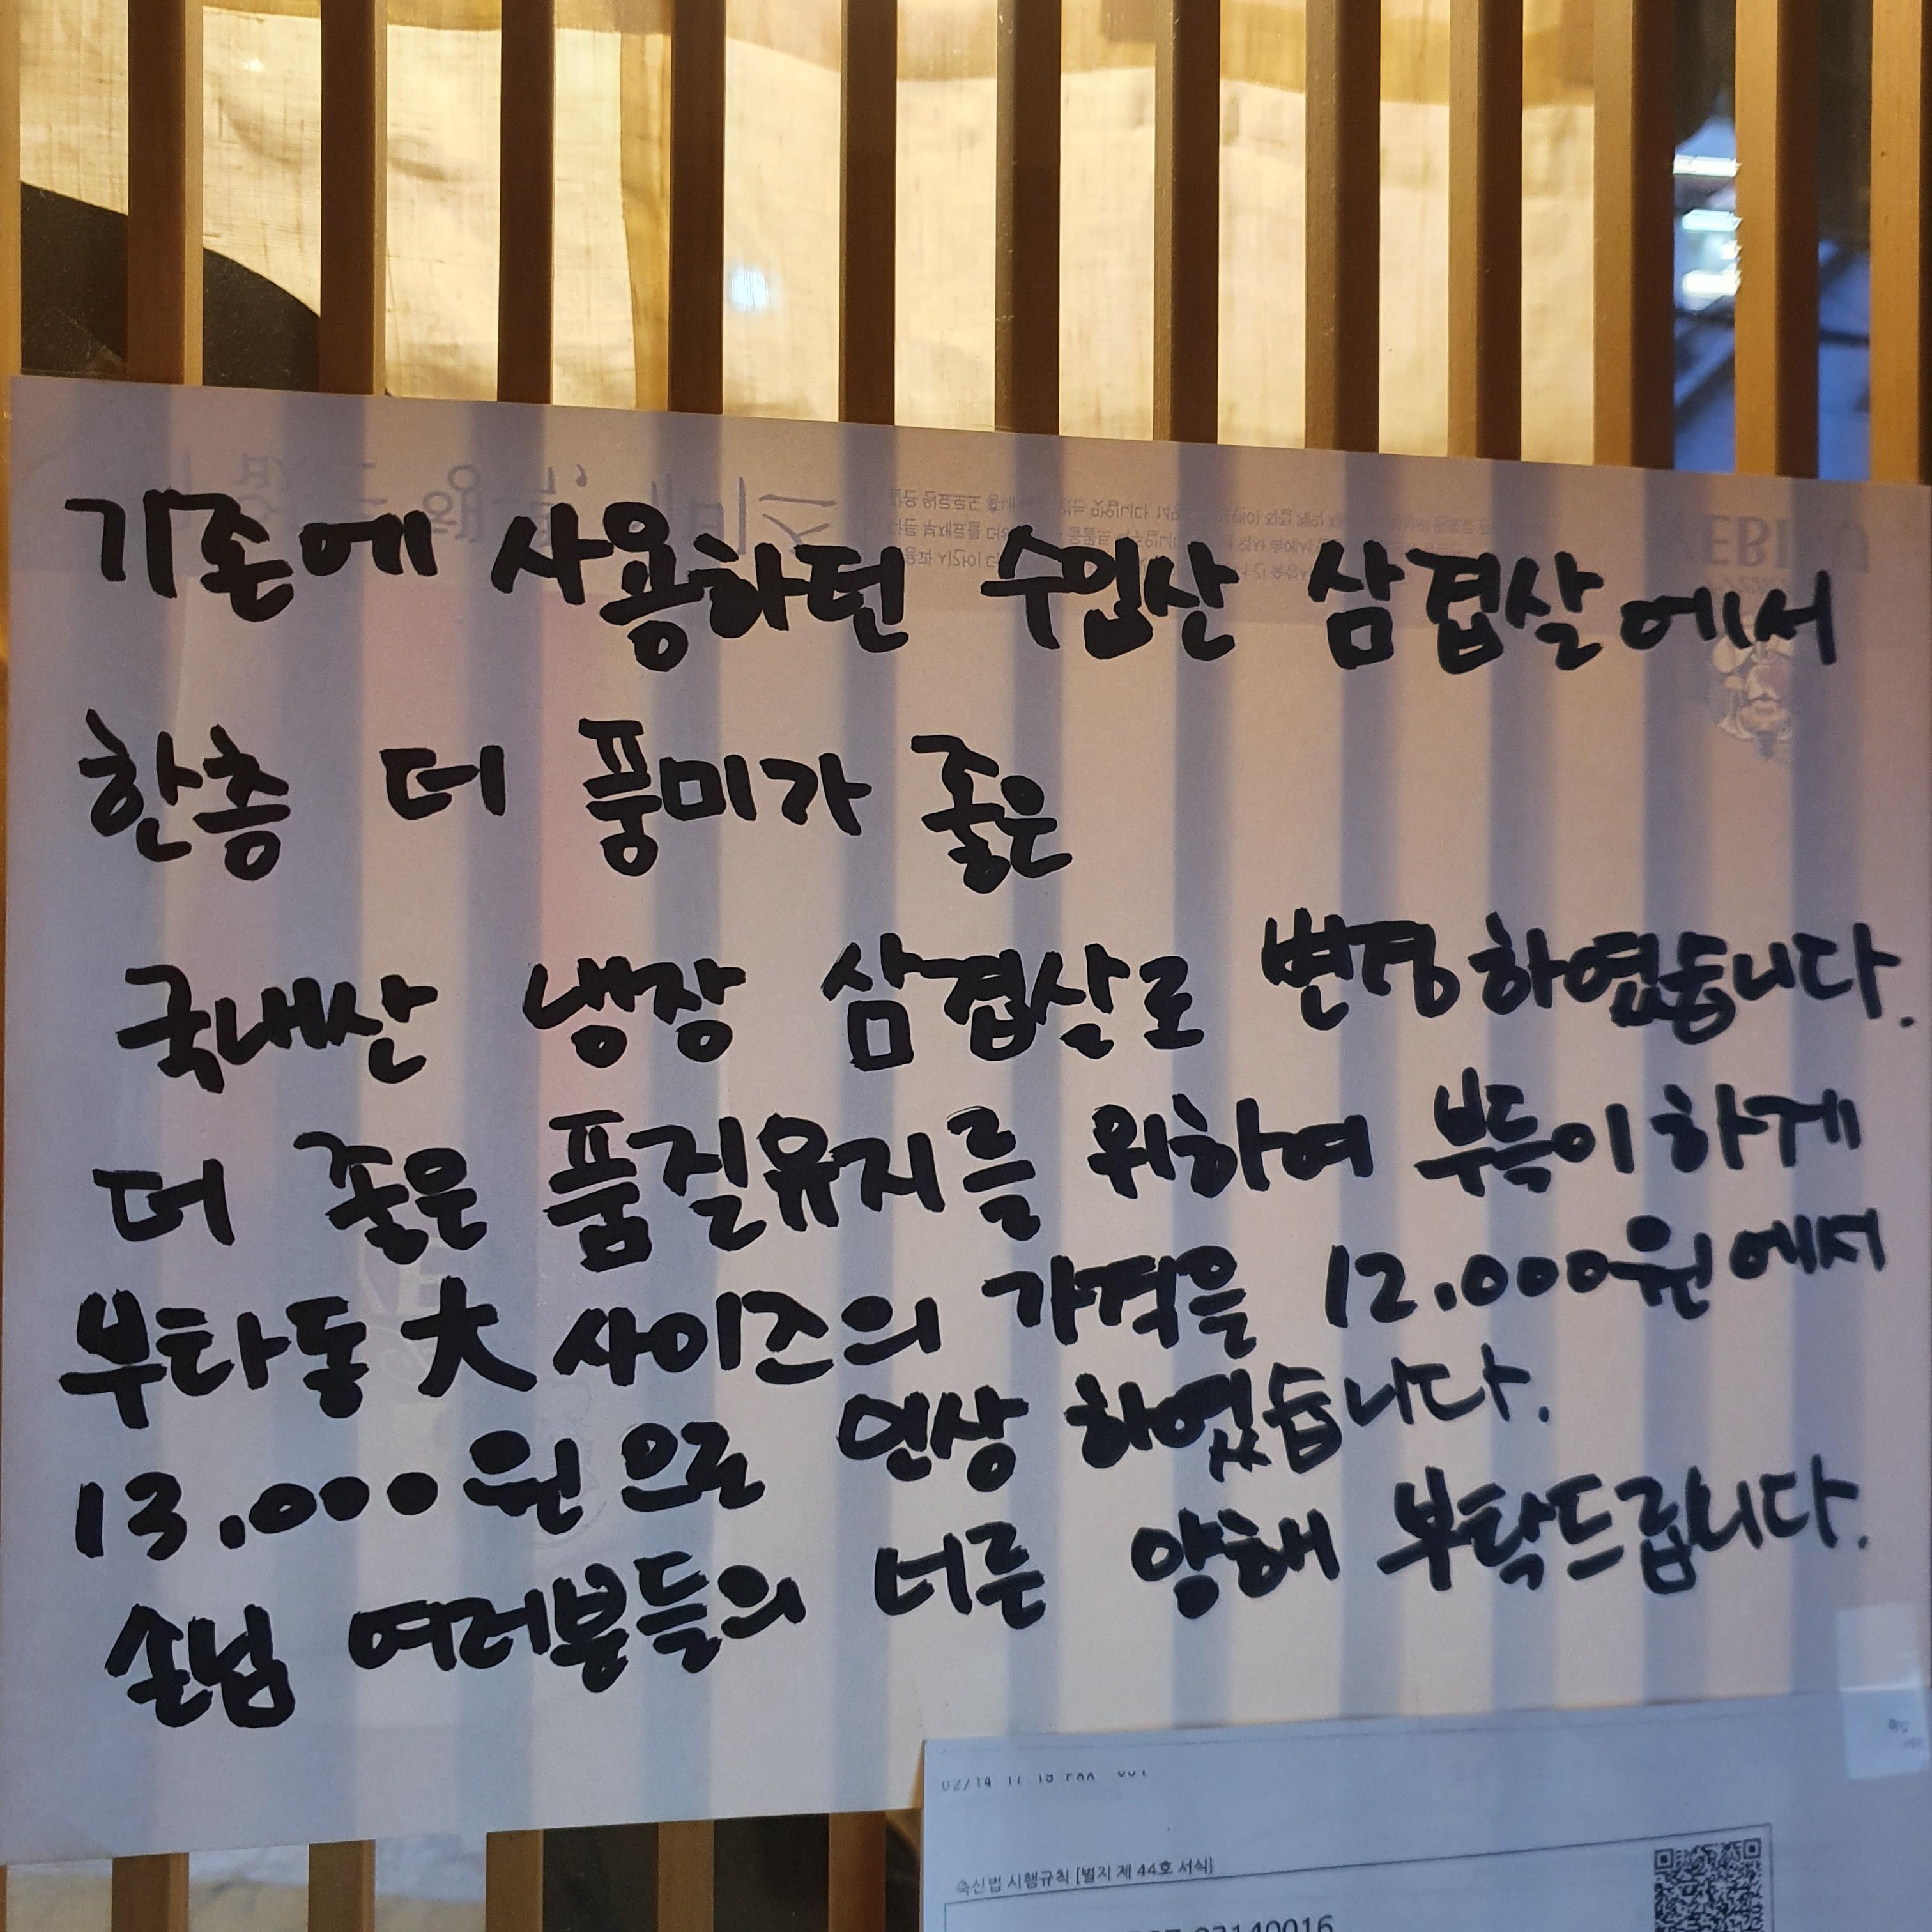 기존에 사용하던 수입산 삼겹살에서
한층 더 풍미가 좋은
국내산 냉장 삼겹살로 변경하였습니다.
더 좋은 품질유지를 위하여 부득이하게
부타동 大 사이즈의 가격을 12.000원에서
13.000원으로 인상 하였습니다.
손님 여러분들의 너른 양해 부탁드립니다.
02/14
축산법 시행규칙 [별지 제 44호 서식]
03140016